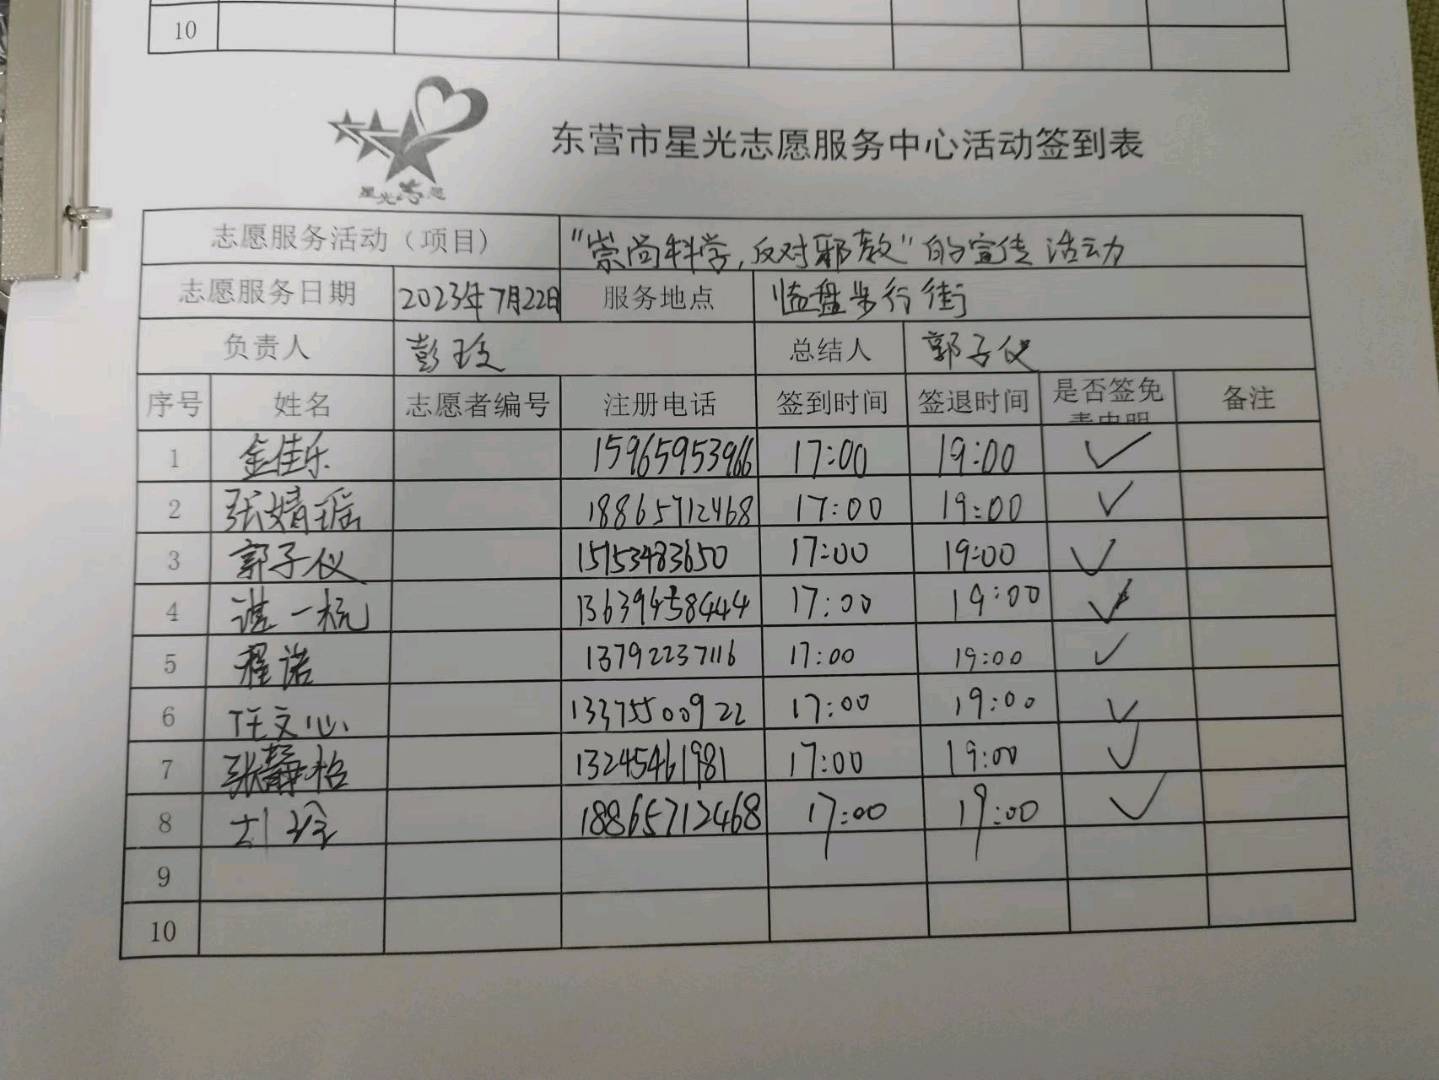 10
星光志愿
东营市星光志愿服务中心活动签到表
志愿服务活动（项目） "崇尚科学，反对邪教"的宣传活动
志愿服务日期 2023年7月22日 服务地点 临盘步行街
负责人 彭玟 总结人 郭子仪
序号 姓名 志愿者编号 注册电话 签到时间 签退时间 是否签免 备注
责申明
1 金佳乐 15965953966 17:00 19:00 ✓
2 张婧瑶 18865712468 17:00 19:00 ✓
3 郭子仪 15153483650 17:00 19:00 ✓
4 谌一杭 17:00 19:00 ✓
5 程诺 13792237116 17:00 19:00 ✓
6 任文心 13375500922 17:00 19:00 ✓
7 张静怡 13245461981 17:00 19:00 ✓
8 18865712468 17:00 19:00 ✓
9
10